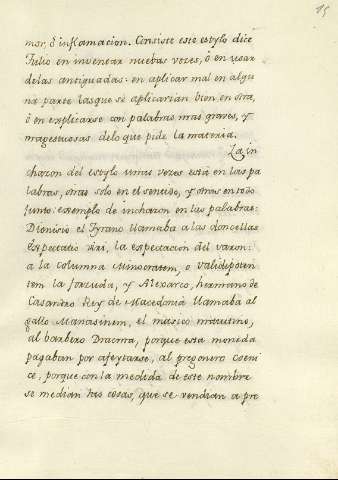 15
mor, ô inflamacion. Consiste este estylo dice
Tulio en inventar nuebas vozes, ô en usar
delas antiquadas: en aplicar mal en algu
na parte lasque se aplicarian bien en otra,
ô en explicarse con palabras mas graves, y
magestuosas delo que pide la materia.
La in
chazon del estylo unas vezes està en las pa
labras, otras solo en el sentido, y otras en todo
junto: exemplo de inchazon en las palabras:
Dionisio el Tyrano llamaba a las doncellas
Expectatio viri, la espectacion del varon:
a la columna Minocratem, o validipoten
tem la forzuda, y Alexarco, hermano de
Casandro Rey de Macedonia llamaba al
gallo Manasinem, el musico matutino,
al barbero Dracma, porque esta moneda
pagaban por afeytarse, al pregonero coeni
ce, porque con la medida de este nombre
se median las cosas, que se vendian a pre